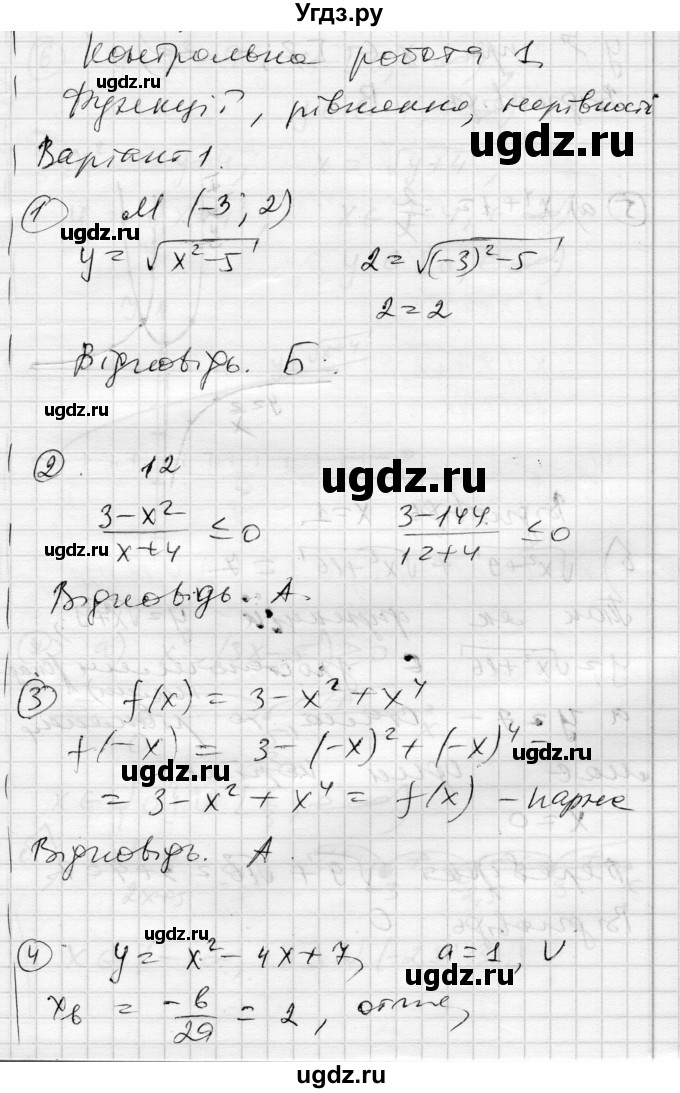 Угдз.ру
Контрольна робота 1
Функції, рівняння, нерівності
Варіант 1.
① M (-3; 2)
y = √(x² - 5)    2 = √((-3)² - 5)
2 = 2
Відповідь. Б.
② 12
(3 - x²)/(x + 4) ≤ 0    (3 - 144)/(12 + 4) ≤ 0
Відповідь. А.
③ f(x) = 3 - x² + x⁴
f(-x) = 3 - (-x)² + (-x)⁴ =
= 3 - x² + x⁴ = f(x) - парна
Відповідь. А.
④ y = x² - 4x + 7, a = 1, ∪
x_в = -в/2а = 2, отже,
ugdz.ru
ugdz.ru
ugdz.ru
ugdz.ru
ugdz.ru
ugdz.ru
ugdz.ru
ugdz.ru
ugdz.ru
ugdz.ru
ugdz.ru
ugdz.ru
ugdz.ru